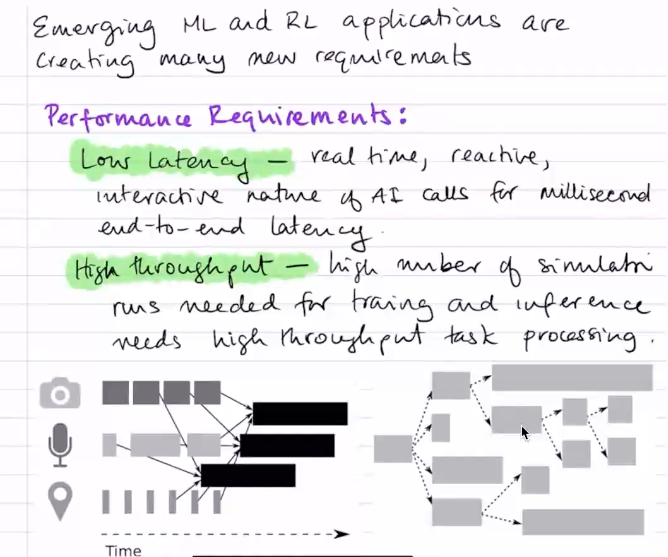 Emerging ML and RL applications are
creating many new requirements
Performance Requirements:
Low latency — real time, reactive,
interactive nature of AI calls for millisecond
end-to-end latency.
High throughput — high number of simulati
runs needed for traing and inference
needs high throughput task processing.
Time